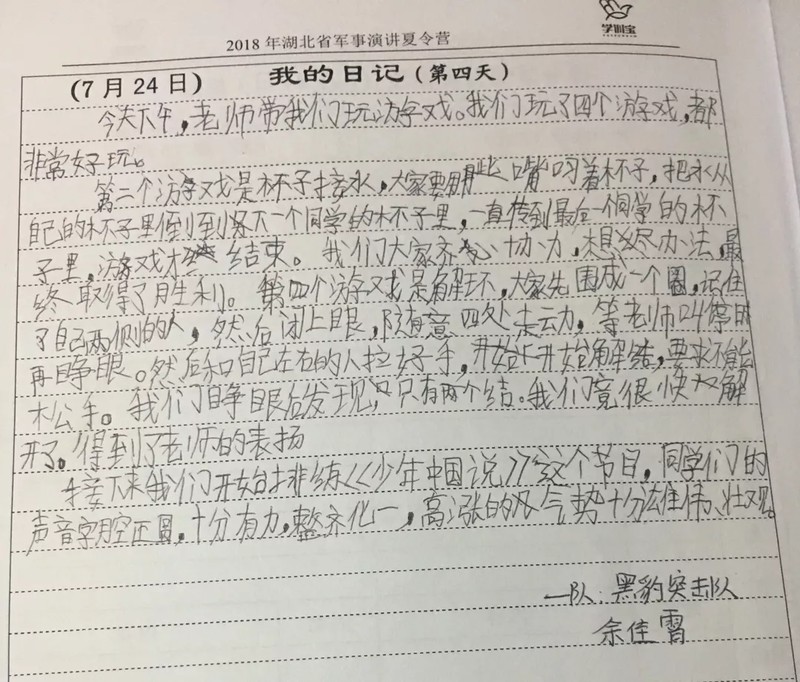 学时宝
2018 年湖北省军事演讲夏令营
(7 月 24 日) 我的日记 (第四天)
今天下午，老师带我们玩游字戏。我们玩了四个游字戏，都
非常好玩。
第二个游字戏是杯子接水，大家要用嘴叼着杯子，把水从
自己的杯子里倒到下一个同学的杯子里，一直传到最后一个同学的杯
子里，游戏才结束。我们大家齐心协力，想尽办法，最
终取得了胜利。第四个游戏是解环，大家先围成一个圈，记住
了自己两侧的人，然后闭上眼，随意四处走动，等老师叫停时
再睁眼。然后和自己左右的人拉好手，开始解结，要求不能
松手。我们睁眼后发现只有两个结。我们竟很快又解
开了。得到了老师的表扬
接下来我们开始排练《少年中国说》这个节目，同学们的
声音字腔正圆，十分有力，整齐化一，高涨的气势十分雄伟、壮观。
一队：黑豹突击队
余佳霄